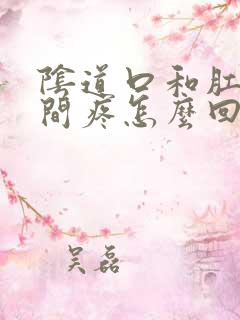 陰道口和肛
間疼怎麼回
吴磊